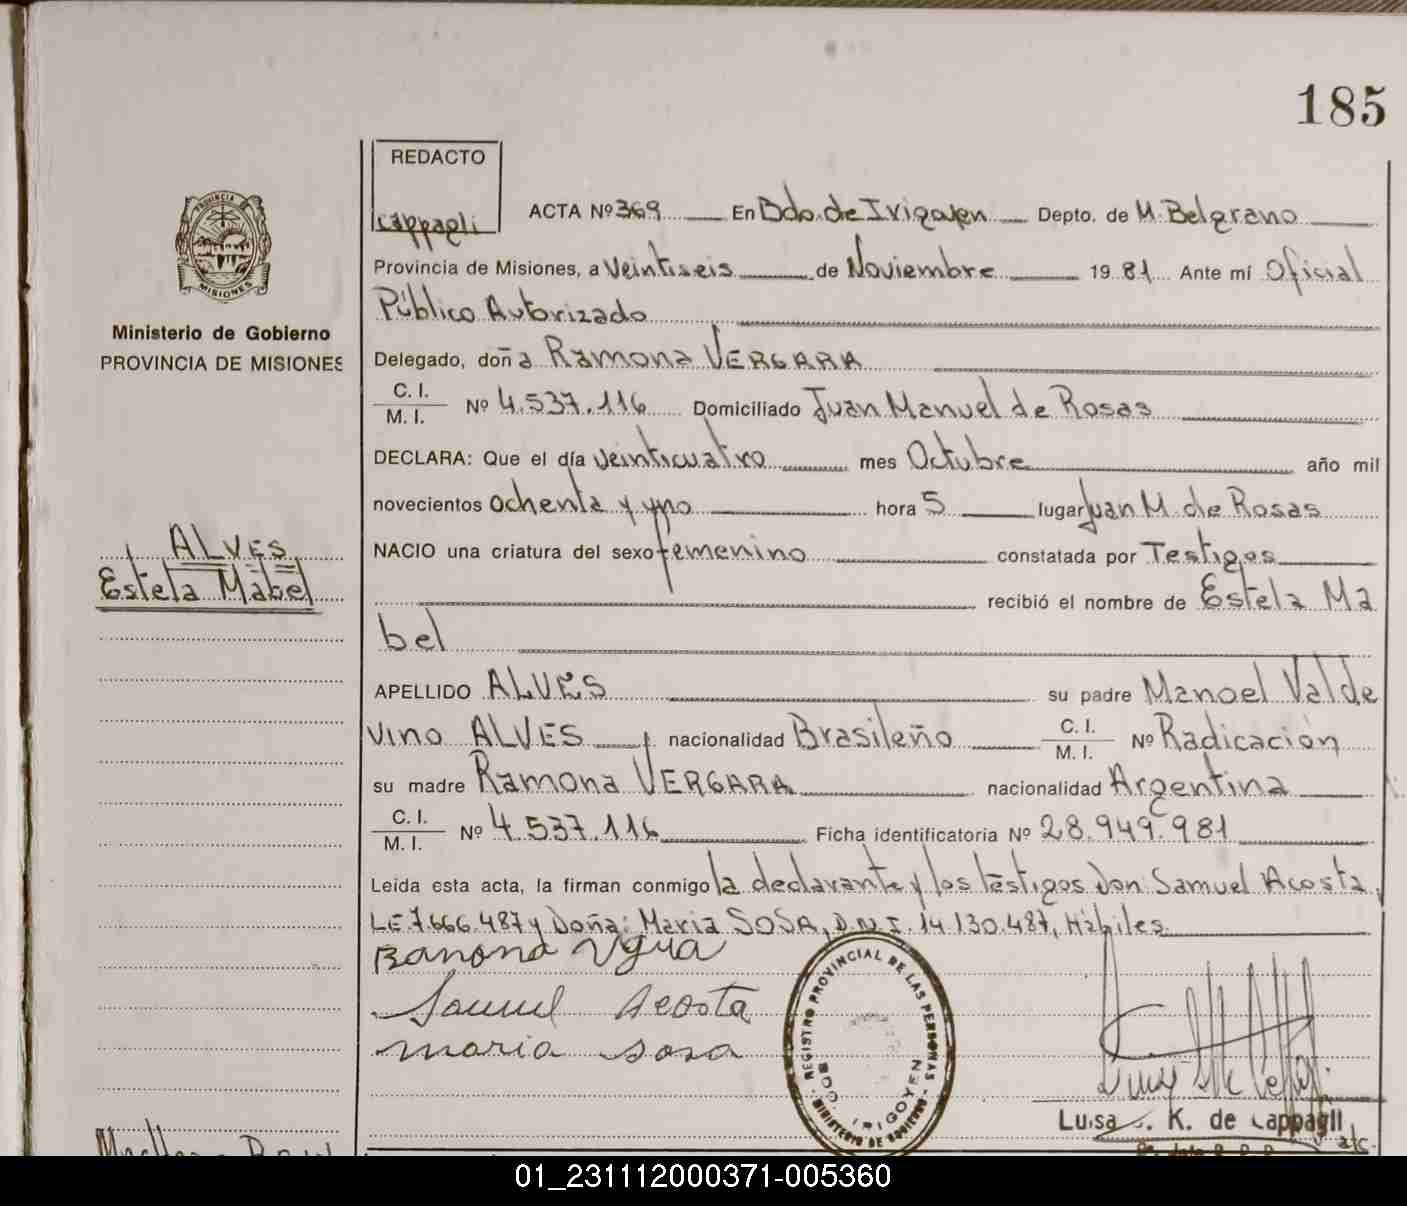 185
REDACTO
Cappagli
ACTA Nº 369 En Bdo. de Irigoyen Depto. de M. Belgrano
Provincia de Misiones, a Veintiseis de Noviembre 1981 Ante mí Oficial
Público Autorizado
Delegado, doña Ramona VERGARA
C. I.
M. I. Nº 4.537.116 Domiciliado Juan Manuel de Rosas
DECLARA: Que el día veinticuatro mes Octubre año mil
novecientos ochenta y uno hora 5 lugar Juan M. de Rosas
NACIO una criatura del sexo femenino constatada por Testigos
recibió el nombre de Estela Ma
bel
APELLIDO ALVES su padre Manoel Valde
vino ALVES nacionalidad Brasileño C. I.
M. I. Nº Radicación
su madre Ramona VERGARA nacionalidad Argentina
C. I.
M. I. Nº 4.537.116 Ficha identificatoria Nº 28.949.981
Leida esta acta, la firman conmigo la declarante y los testigos Don Samuel Acosta,
LE.7.666.487 y Doña: Maria SOSA, D.N.I. 14.130.487, Hábiles
Samuel Acosta
maria sosa
REGISTRO PROVINCIAL DE LAS PERSONAS
MINISTERIO DE GOBIERNO
IRIGOYEN
Luisa K. de Cappagli
a/c.
PROVINCIA DE
MISIONES
Ministerio de Gobierno
PROVINCIA DE MISIONES
ALVES
Estela Mabel
01_231112000371-005360